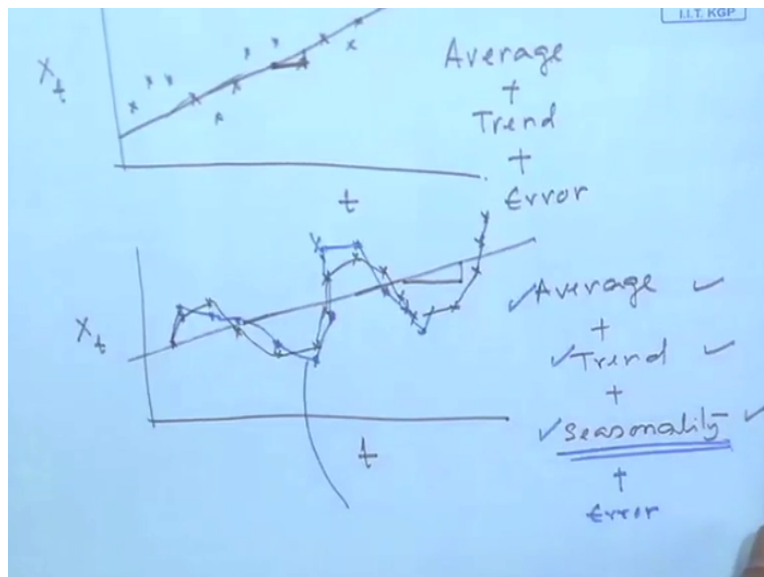 I.I.T. KGP
Xt
Average
+
Trend
+
Error
t
Xt
✓Average ✓
+
✓Trend ✓
+
✓Seasonality ✓
+
Error
t